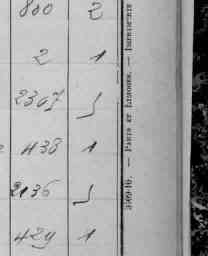 800 2
2 1
2307 5
438 1
2136 5
429 1
3509-16. — PARIS ET LIMOGES. — IMPRIMERIE